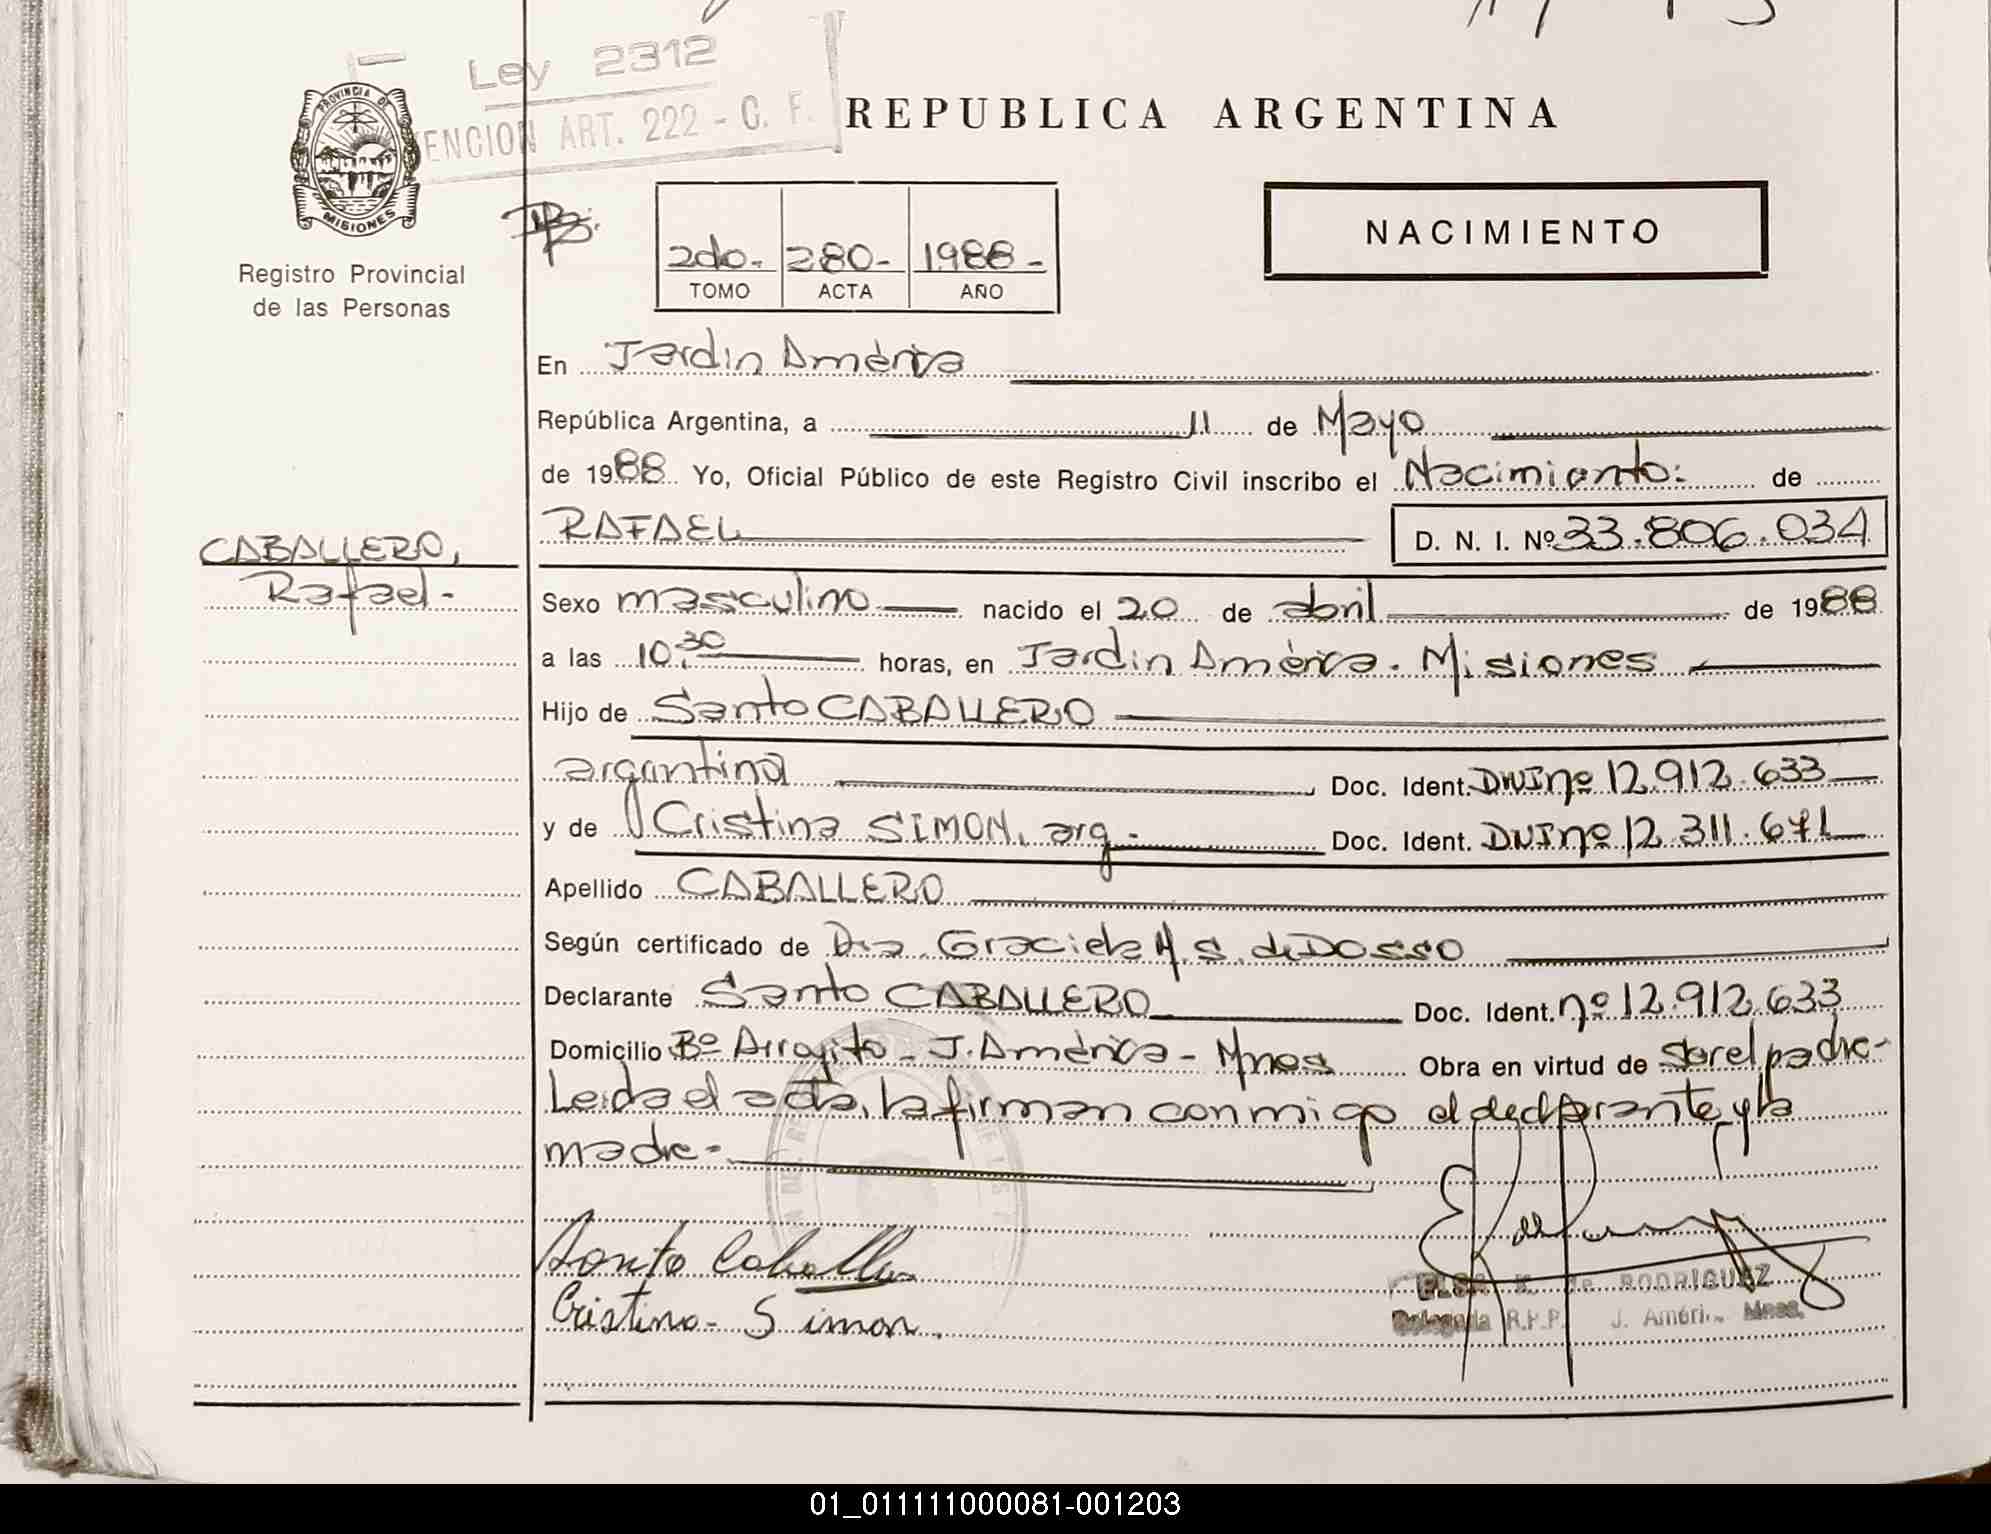 Ley 2312
ENCION ART. 222 - C. F.
REPUBLICA ARGENTINA
PROVINCIA DE
MISIONES
Registro Provincial
de las Personas
2do.- 280- 1988-
TOMO ACTA AÑO
NACIMIENTO
En Jardin América
República Argentina, a 11 de Mayo
de 1988 Yo, Oficial Público de este Registro Civil inscribo el Nacimiento: de
RAFAEL D. N. I. Nº 33.806.034
CABALLERO,
Rafael-
Sexo masculino nacido el 20 de abril de 1988
a las 10,30 horas, en Jardin América. Misiones
Hijo de Santo CABALLERO
argentina Doc. Ident. DNI nº 12.912.633
y de Cristina SIMON, arg.- Doc. Ident. DNI nº 12.311.671
Apellido CABALLERO
Según certificado de Dra. Graciela M. S. de DOSSO
Declarante Santo CABALLERO Doc. Ident. nº 12.912.633
Domicilio Bº Arroyito - J. América - Mnes Obra en virtud de ser el padre-
Leida el acta, la firman conmigo el declarante y la
madre-
Santo Caballero
Cristina - Simon.
ELSA K. de RODRIGUEZ
Delegada R.P.P. J. Améri. Mnes.
01_011111000081-001203